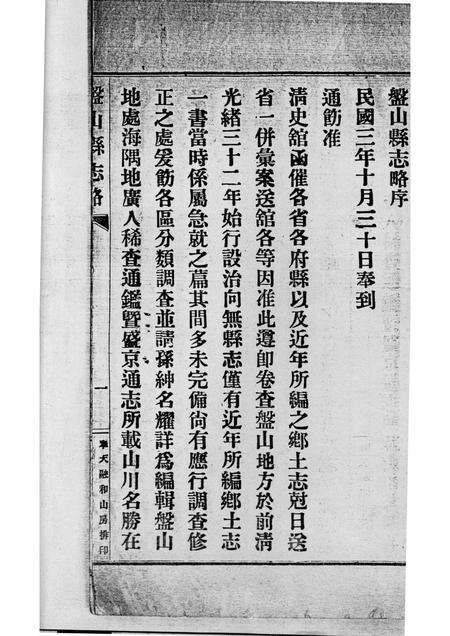 盤山縣志略序
民國三年十月三十日奉到
通飭准
淸史舘函催各省各府縣以及近年所編之鄕土志尅日送
省一併彙案送舘各等因准此遵卽卷查盤山地方於前淸
光緒三十二年始行設治向無縣志僅有近年所編鄕土志
一書當時係屬急就之篇其間多未完備尙有應行調查修
正之處爰飭各區分類調查並請孫紳名耀詳爲編輯盤山
地處海隅地廣人稀查通鑑曁盛京通志所載山川名勝在
盤山縣志略
一
奉天融和山房摆印